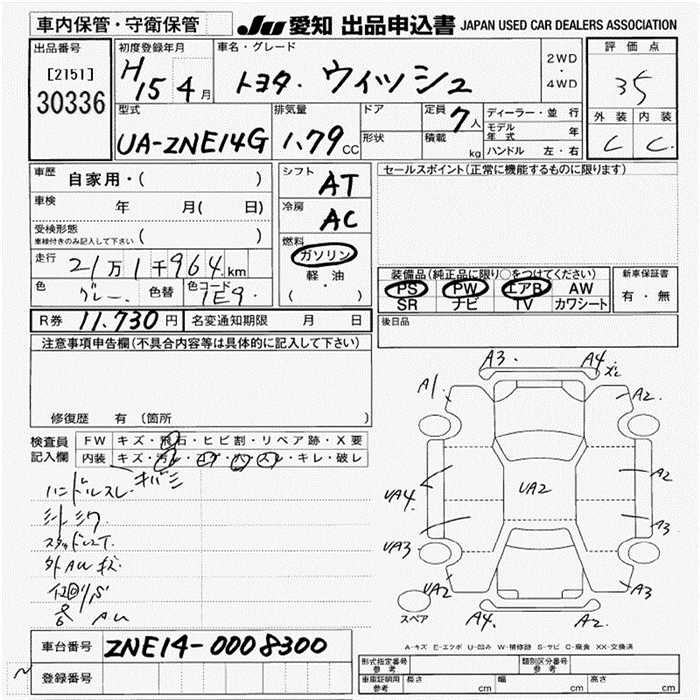 車内保管・守衛保管
JU 愛知 出品申込書 JAPAN USED CAR DEALERS ASSOCIATION
出品番号
[2151]
30336
初度登録年月
H15 4月
車名・グレード
トヨタ・ウィッシュ
2WD
・
4WD
評価点
3.5
外装 内装
C C
型式
UA-ZNE14G
排気量
1.79 CC
ドア
形状
定員 7人
積載 kg
ディーラー・並行
モデル年式 年
ハンドル 左・右
車歴
自家用・( )
車検 年 月( 日)
受検形態
車検付きのみ記入して下さい ( )
走行 21万1千964km
色 グレー 色替 色コード 1E9
シフト AT
冷房 AC
燃料
ガソリン
軽油
( ・ )
セールスポイント(正常に機能するものに限ります)
装備品(純正品に限り○をつけてください)
PS PW エアB AW
SR ナビ TV カワシート
新車保証書
有・無
R券 11,730円 名変通知期限 月 日
後日品
注意事項申告欄(不具合内容等は具体的に記入して下さい)
修復歴 有 (箇所 )
検査員
記入欄
FW キズ・飛石・ヒビ割・リペア跡・X要
内装 キズ・汚レ・コゲ・穴・スレ・キレ・破レ
ハンドルスレ
キバミ
外AWキズ
A3 A4
A1 A2
UA4 UA2 A2
UA3 A3
UA2 A3
A4 A2
スペア
A-キズ E-エクボ U-凹み W-補修跡 S-サビ C-腐食 XX-交換済
車台番号 ZNE14-0008300
登録番号
形式指定番号
参考
類別区分番号
参考
車庫証明用
参考
長さ cm 巾 cm 高さ cm